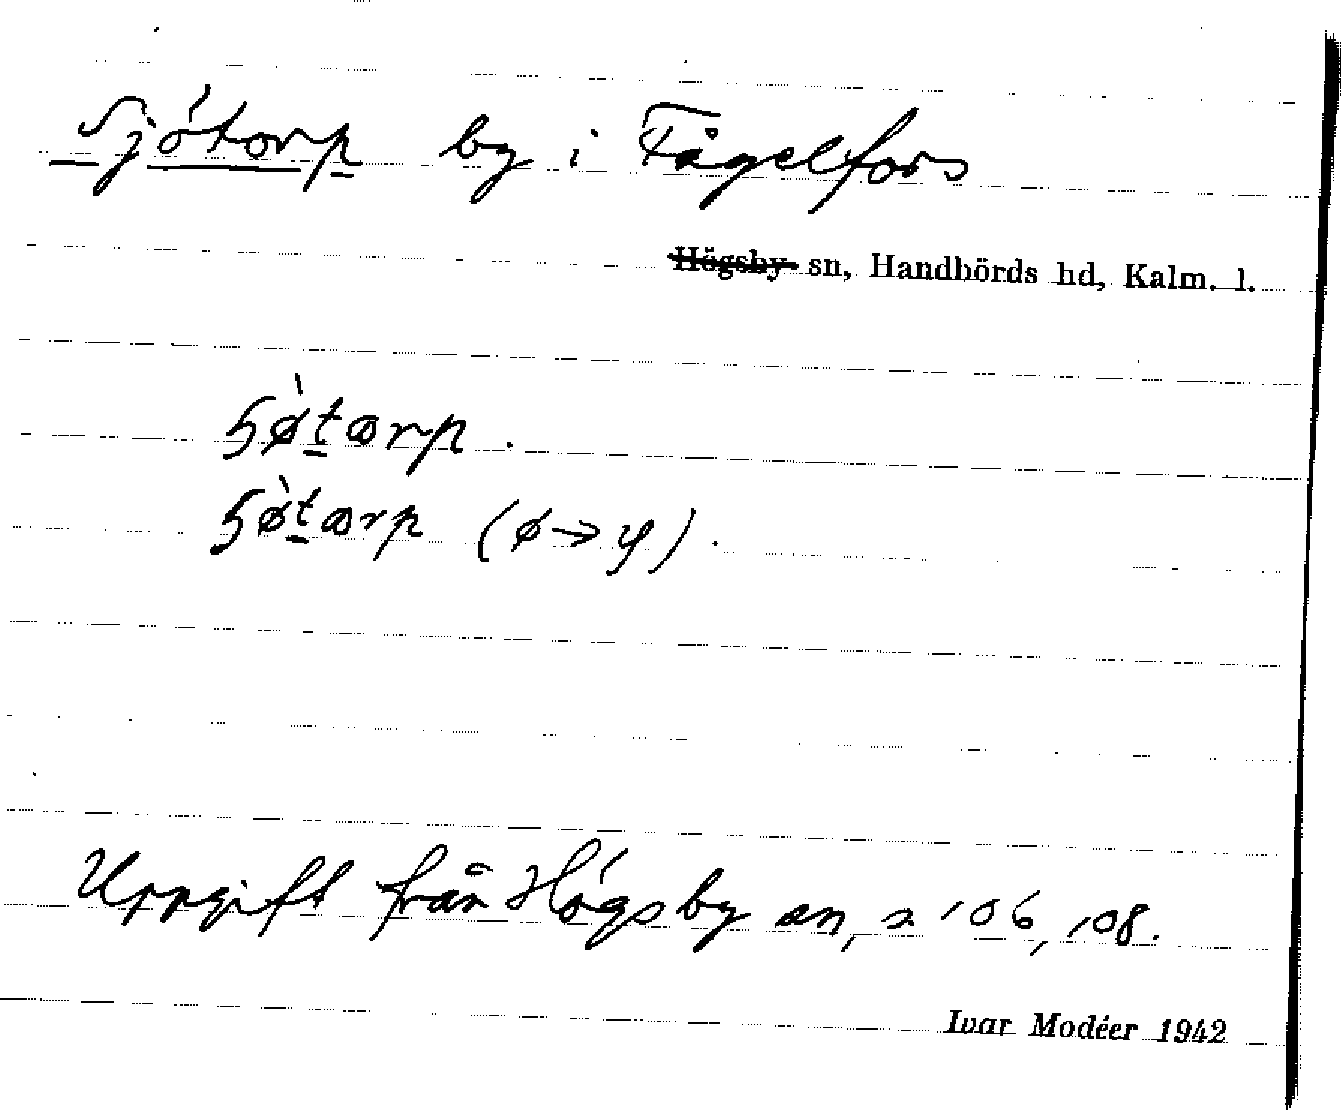 Sjötorp by i Fågelfors
Högsby sn, Handbörds hd, Kalm. l.
ɧø̀tɷrp.
ɧø̀tɷrp (ø→y).
Uppgift från Högsby sn, s 106, 108.
Ivar Modéer 1942